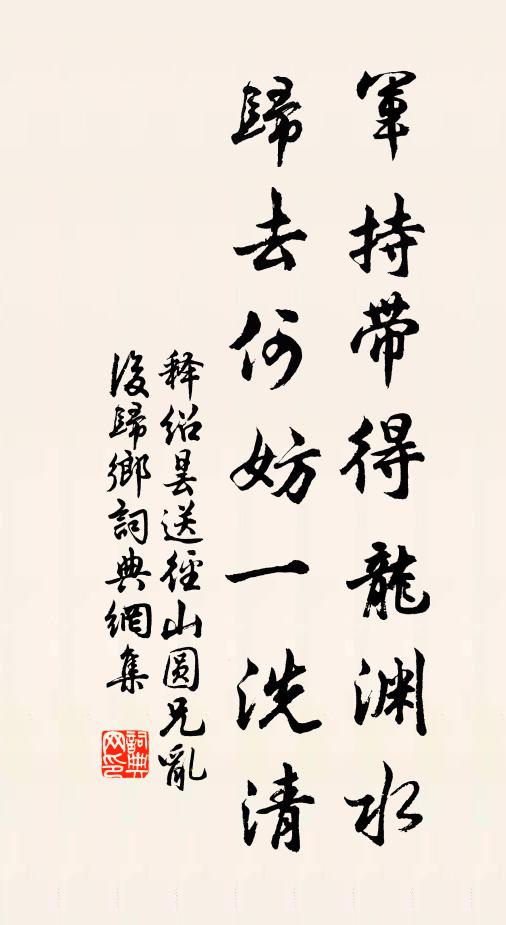 軍持带得龍渊水
歸去何妨一洗清
释紹曇送徑山圆兄亂
後歸鄉詞典網集
詞典网印